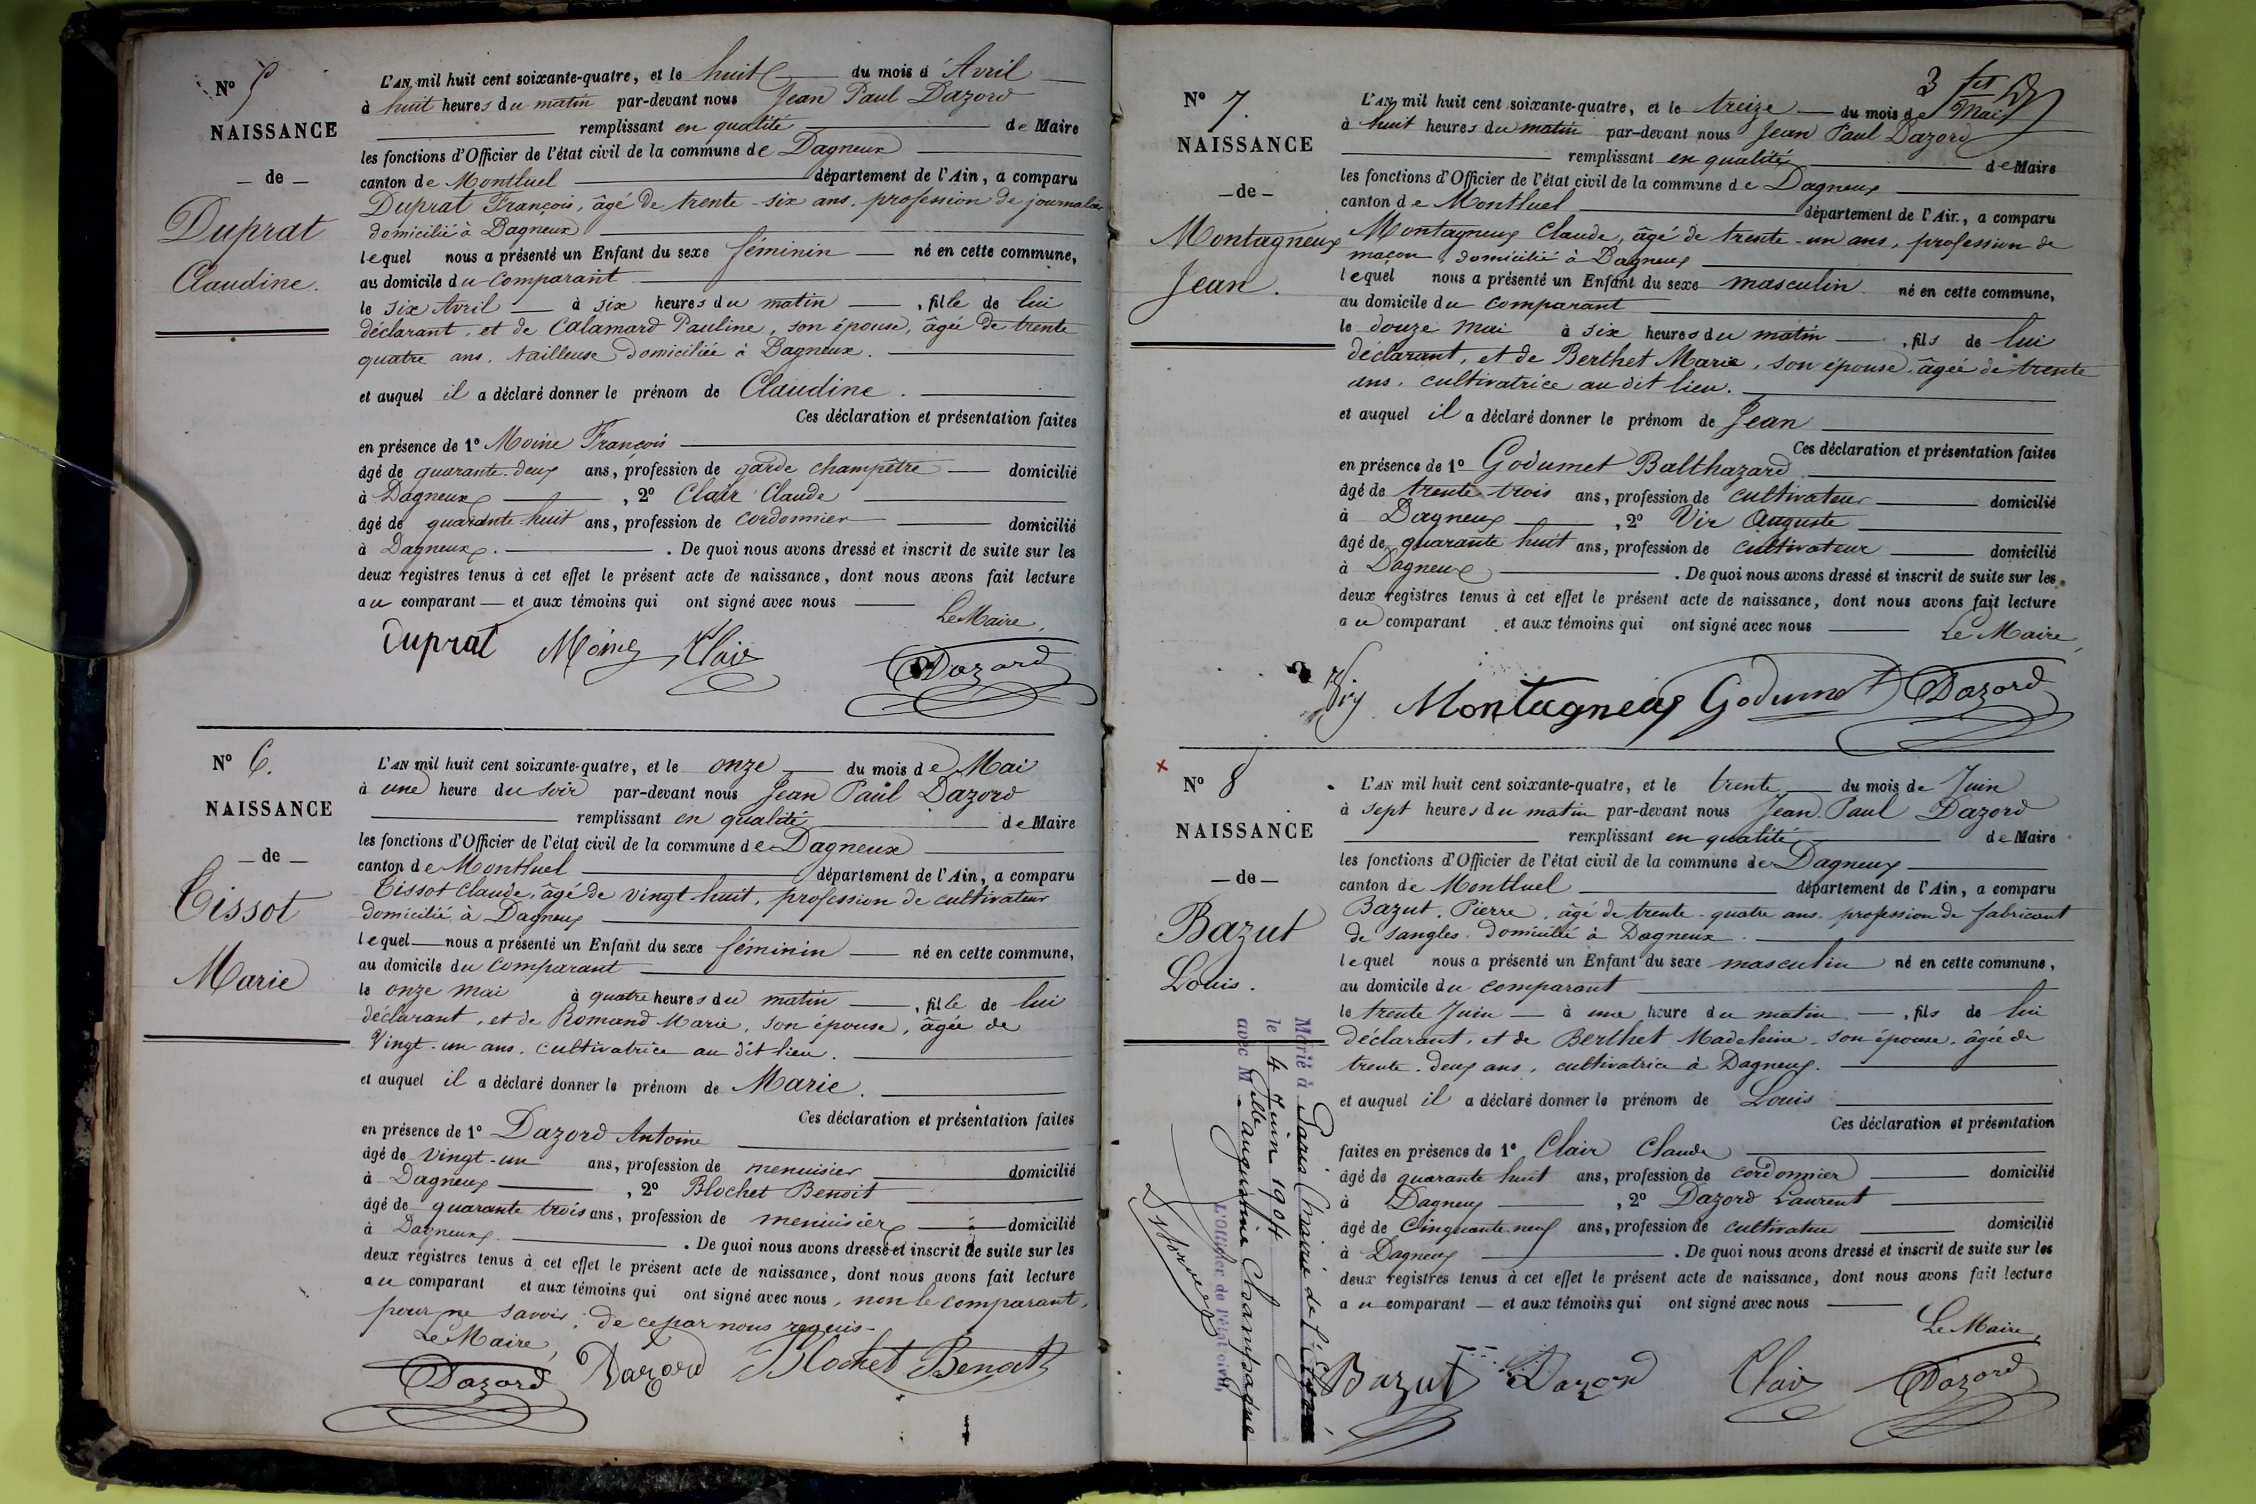 N° 5
NAISSANCE
— de —
Duprat
Claudine.
L'AN mil huit cent soixante-quatre, et le huit — du mois d'Avril —
à huit heures du matin par-devant nous Jean Paul Dazord
— remplissant en qualité — de Maire
les fonctions d'Officier de l'état civil de la commune de Dagneux —
canton de Montluel — département de l'Ain, a comparu
Duprat François, âgé de trente-six ans, profession de journalier
domicilié à Dagneux —
lequel nous a présenté un Enfant du sexe féminin — né en cette commune,
au domicile du comparant —
le six Avril — à six heures du matin —, fille de lui
déclarant, et de Calamard Pauline, son épouse, âgée de trente
quatre ans, tailleuse domiciliée à Dagneux. —
et auquel il a déclaré donner le prénom de Claudine. —
Ces déclaration et présentation faites
en présence de 1° Moine François —
âgé de quarante-deux ans, profession de garde champêtre — domicilié
à Dagneux —, 2° Clair Claude —
âgé de quarante-huit ans, profession de cordonnier — domicilié
à Dagneux. — . De quoi nous avons dressé et inscrit de suite sur les
deux registres tenus à cet effet le présent acte de naissance, dont nous avons fait lecture
au comparant — et aux témoins qui ont signé avec nous —
Le Maire,
Duprat Moine Clair Dazord
N° 6.
NAISSANCE
— de —
Tissot
Marie
L'AN mil huit cent soixante-quatre, et le onze — du mois de Mai
à une heure du soir par-devant nous Jean Paul Dazord
— remplissant en qualité — de Maire
les fonctions d'Officier de l'état civil de la commune de Dagneux —
canton de Montluel — département de l'Ain, a comparu
Tissot Claude, âgé de vingt huit, profession de cultivateur
domicilié à Dagneux —
lequel — nous a présenté un Enfant du sexe féminin — né en cette commune,
au domicile du comparant —
le onze mai à quatre heures du matin —, fille de lui
déclarant, et de Romand Marie, son épouse, âgée de
Vingt-un ans, cultivatrice au dit lieu. —
et auquel il a déclaré donner le prénom de Marie. —
Ces déclaration et présentation faites
en présence de 1° Dazord Antoine —
âgé de vingt-un ans, profession de menuisier — domicilié
à Dagneux —, 2° Blochet Benoit —
âgé de quarante trois ans, profession de menuisier — domicilié
à Dagneux — . De quoi nous avons dressé et inscrit de suite sur les
deux registres tenus à cet effet le présent acte de naissance, dont nous avons fait lecture
au comparant et aux témoins qui ont signé avec nous, non le comparant,
pour ne savoir; de ce par nous requis —
Le Maire,
Dazord Dazord Blochet Benoit
3
N° 7.
NAISSANCE
— de —
Montagneux
Jean.
L'AN mil huit cent soixante-quatre, et le treize — du mois de Mai
à huit heures du matin par-devant nous Jean Paul Dazord
— remplissant en qualité — de Maire
les fonctions d'Officier de l'état civil de la commune de Dagneux —
canton de Montluel — département de l'Ain, a comparu
Montagneux Claude, âgé de trente-un ans, profession de
maçon, domicilié à Dagneux —
lequel nous a présenté un Enfant du sexe masculin né en cette commune,
au domicile du comparant —
le douze Mai à six heures du matin —, fils de lui
déclarant, et de Berthet Marie, son épouse, âgée de trente
ans, cultivatrice au dit lieu. —
et auquel il a déclaré donner le prénom de Jean —
Ces déclaration et présentation faites
en présence de 1° Godumet Balthazard —
âgé de trente trois ans, profession de cultivateur — domicilié
à Dagneux —, 2° Vir Auguste —
âgé de quarante huit ans, profession de cultivateur — domicilié
à Dagneux — . De quoi nous avons dressé et inscrit de suite sur les
deux registres tenus à cet effet le présent acte de naissance, dont nous avons fait lecture
au comparant et aux témoins qui ont signé avec nous —
Le Maire,
Montagneux Godumet Dazord
N° 8
NAISSANCE
— de —
Bazut
Louis.
L'AN mil huit cent soixante-quatre, et le trente — du mois de Juin
à sept heures du matin par-devant nous Jean Paul Dazord
— remplissant en qualité — de Maire
les fonctions d'Officier de l'état civil de la commune de Dagneux —
canton de Montluel — département de l'Ain, a comparu
Bazut, Pierre, âgé de trente-quatre ans, profession de fabricant
de sangles, domicilié à Dagneux. —
lequel nous a présenté un Enfant du sexe masculin né en cette commune,
au domicile du comparant —
le trente Juin — à une heure du matin. —, fils de lui
déclarant, et de Berthet Madeleine, son épouse, âgée de
trente-deux ans, cultivatrice à Dagneux. —
et auquel il a déclaré donner le prénom de Louis —
Ces déclaration et présentation
faites en présence de 1° Clair Claude —
âgé de quarante huit ans, profession de cordonnier — domicilié
à Dagneux —, 2° Dazord Laurent —
âgé de Cinquante-neuf ans, profession de cultivateur — domicilié
à Dagneux — . De quoi nous avons dressé et inscrit de suite sur les
deux registres tenus à cet effet le présent acte de naissance, dont nous avons fait lecture
au comparant — et aux témoins qui ont signé avec nous —
Le Maire,
Bazut Dazord Clair Dazord
Marié à Paris (mairie de l'Elysée)
le 4 Juin 1904
avec Mlle Augustine Champagne
L'Officier de l'état civil,